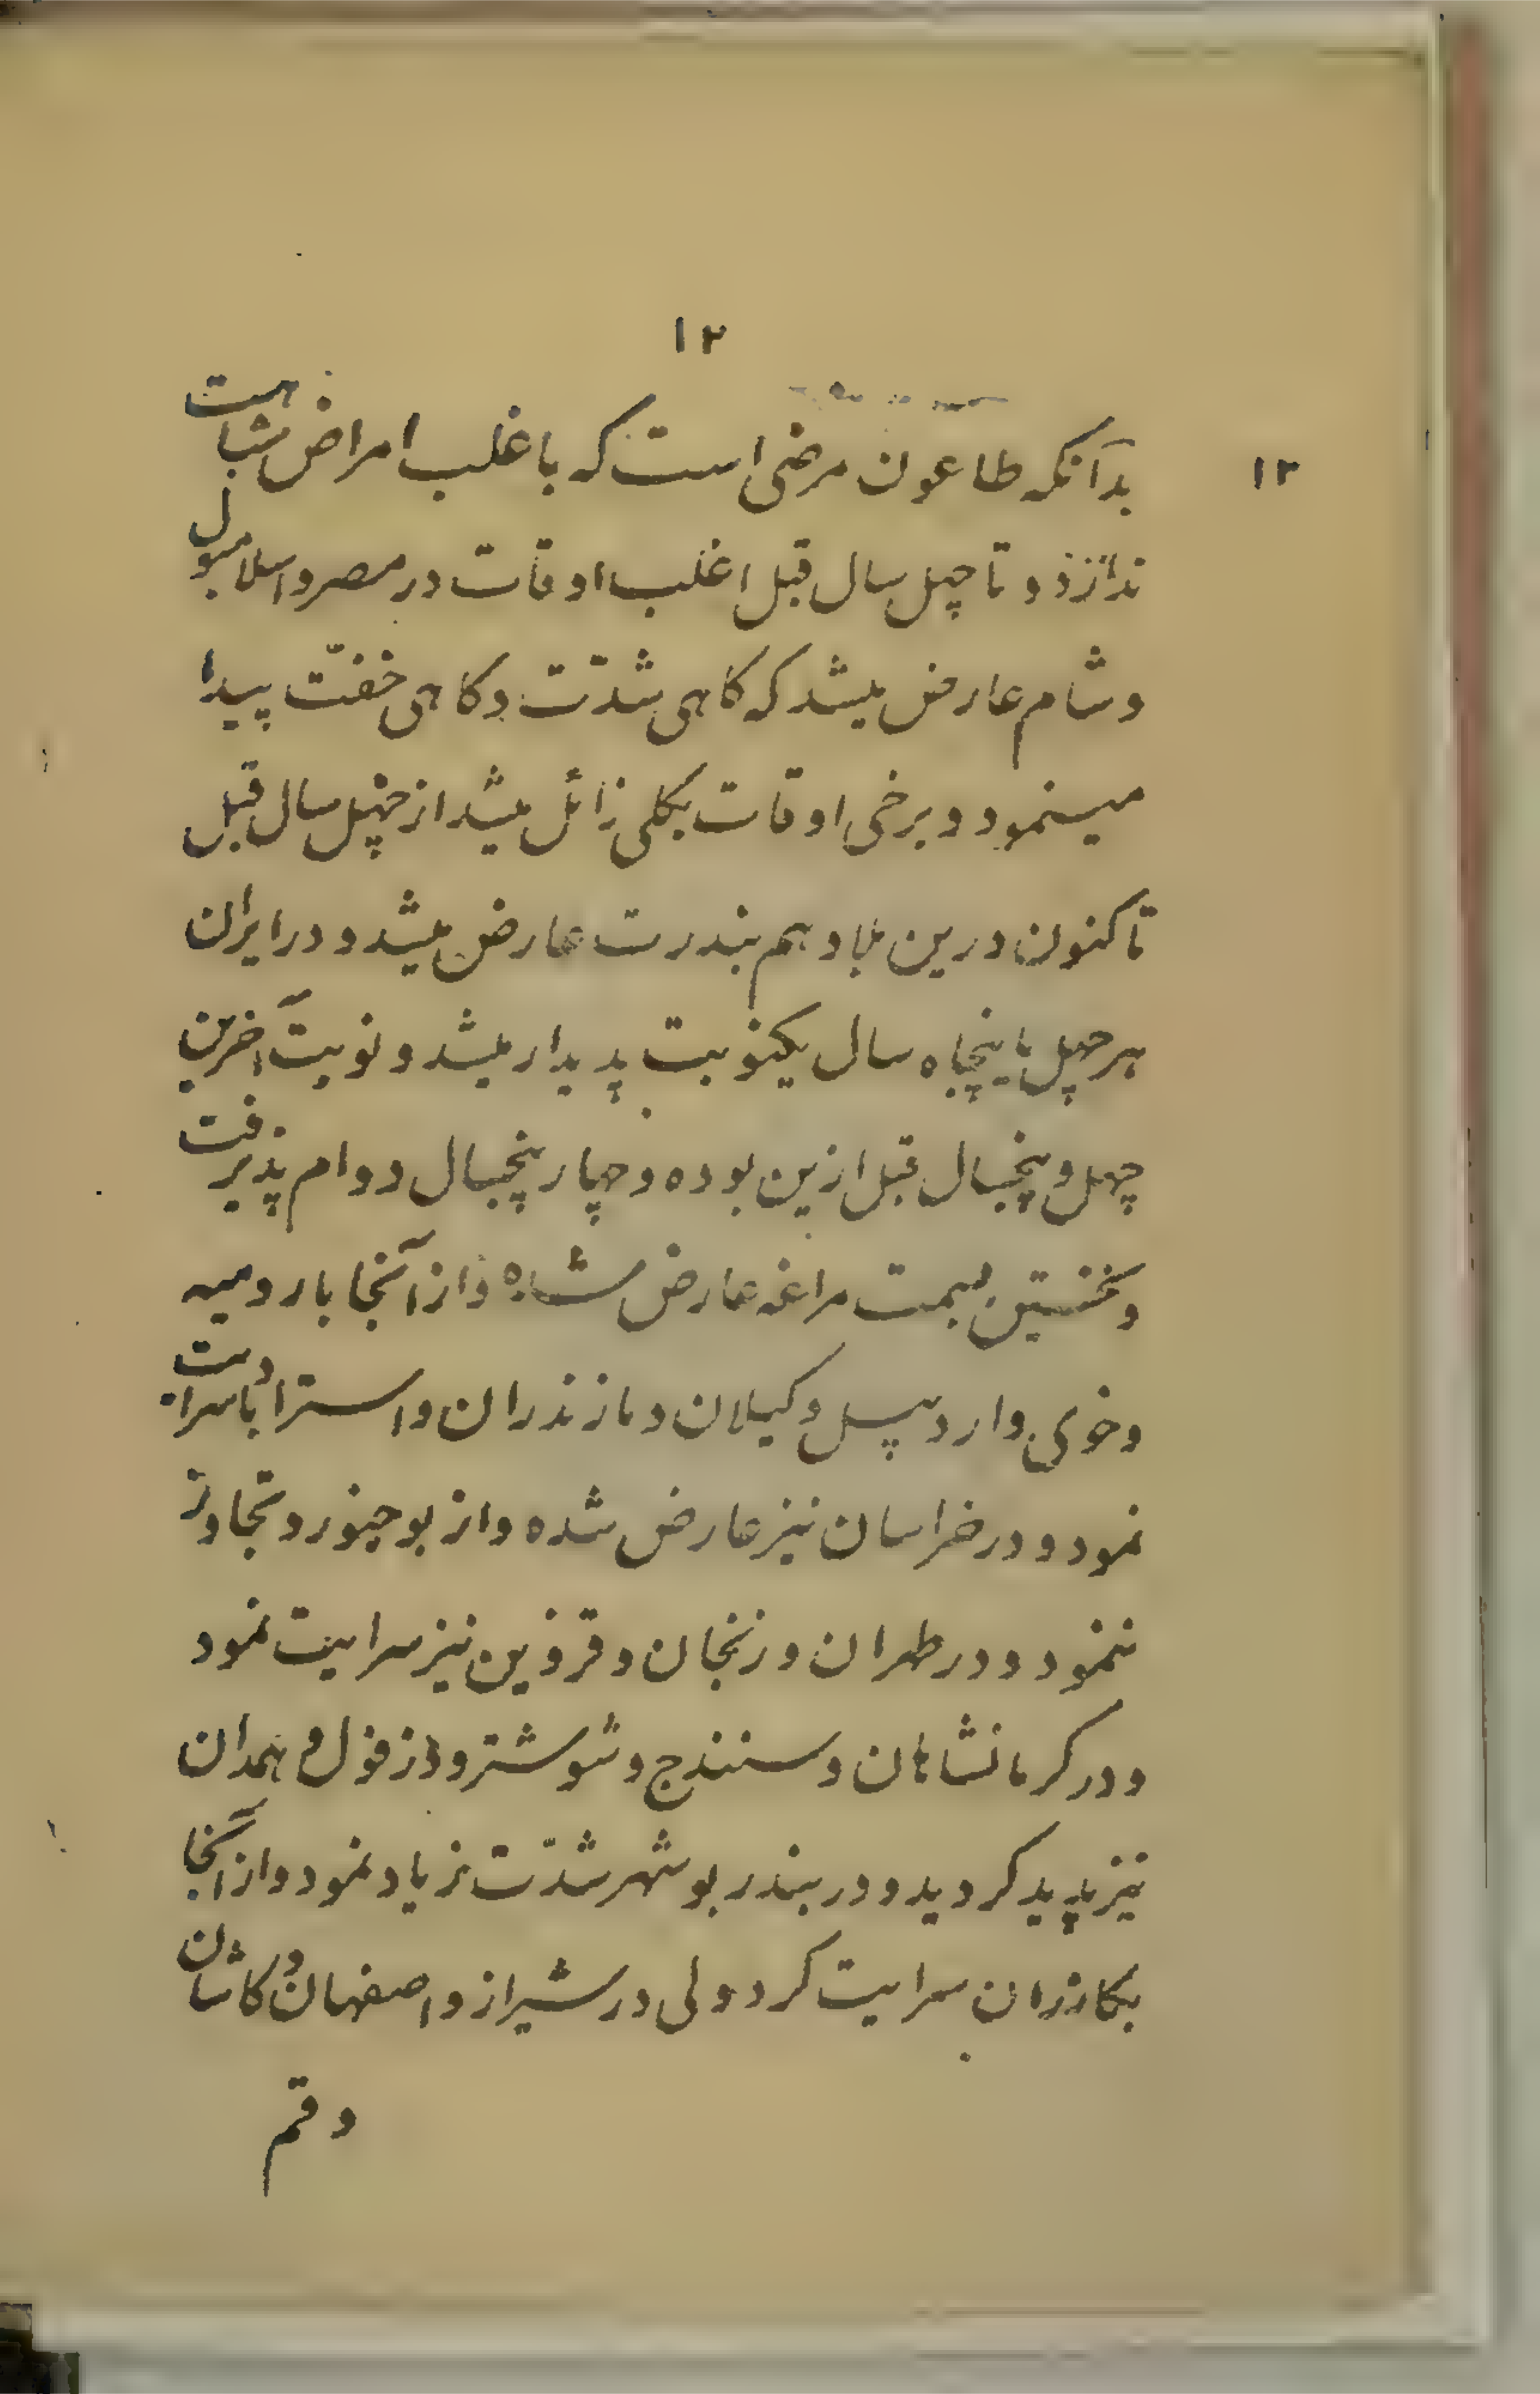 ۱۲
۱۲
بدآنکه طاعون مرضی است که با غلب امراض مشباهت
ندارد و تا چهل سال قبل اغلب اوقات در مصر و اسلامبول
و شام عارض میشد که کاهی شدّت و کاهی خفتّ پیدا
مینمود و برخی اوقات بکلی زائل میشد از چهل سال قبل
تا کنون درین بلاد هم بندرت عارض میشد و در ایران
هر چهل پاینچاه سال یکنوبت پدیدار میشد و نوبت آخرین
چهل و پنجسال قبل ازین بوده و چهار پنجسال دوام پذیرفت
و نخستین بسمت مراغه عارض شده و از آنجا بارومیه
و خوی و اردبیل و کیلان و مازندران و استراباد سرایت
نمود و در خراسان نیز عارض شده و از بوجنورد تجاوز
ننمود و در طهران و زنجان و قزوین نیز سرایت نمود
و در کرمانشاهان و سنندج و شوشتر و دزفول و همدان
نیز پدید کردید و در بندر بوشهر شدّت زیاد نمود و از آنجا
بکازران سرایت کرد ولی در شیراز و اصفهان و کاشان
و قم